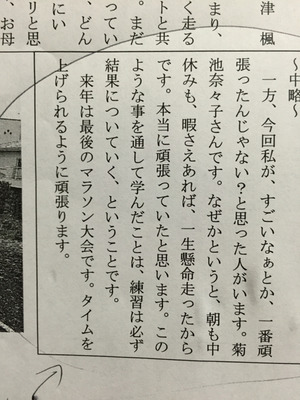 津　楓
まり、
く走る
トと共
。まだ
ってい
、どん
にい
リと思
、お母
～中略～
一方、今回私が、すごいなぁとか、一番頑
張ったんじゃない？と思った人がいます。菊
池奈々子さんです。なぜかというと、朝も中
休みも、暇さえあれば、一生懸命走ったから
です。本当に頑張っていたと思います。この
ような事を通して学んだことは、練習は必ず
結果についていく、ということです。
来年は最後のマラソン大会です。タイムを
上げられるように頑張ります。